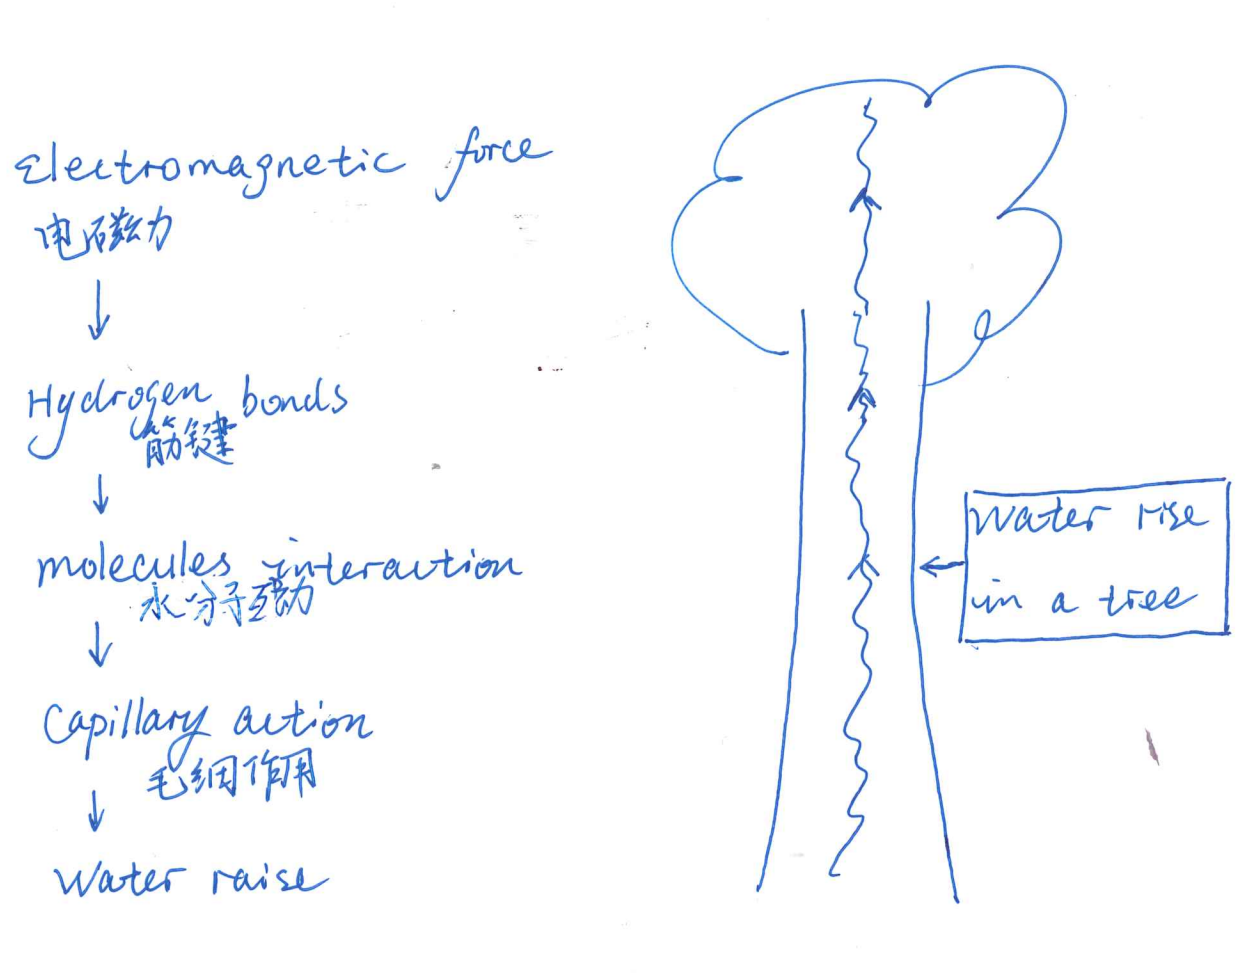 Electromagnetic force
电磁力
↓
Hydrogen bonds
筋键
↓
molecules interaction
水分子互动
↓
Capillary action
毛细作用
↓
Water raise
Water rise
in a tree